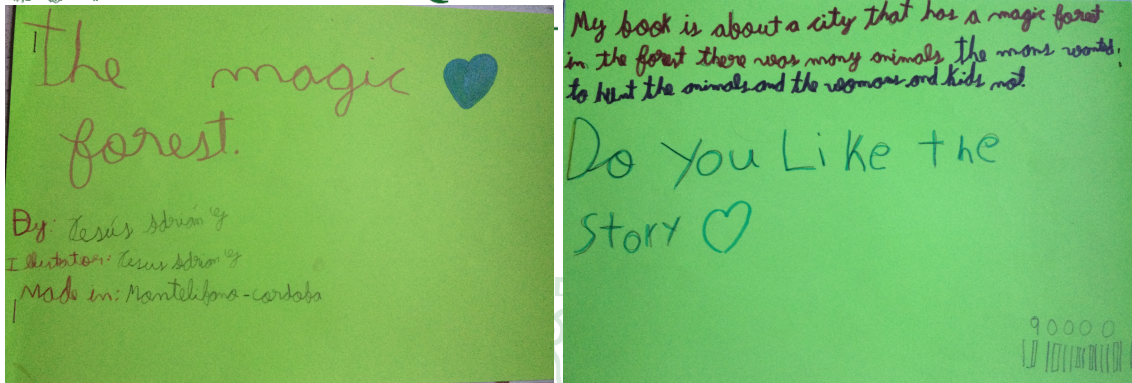 The magic
forest.
By: Jesús Adrian G
Illustrator: Jesus Adrian G
Made in: Montelibano-cordoba
My book is about a city that has a magic forest
in the forest there was many animals, the mans wanted
to hunt the animals and the womans and kids not.
Do you Like the
Story
90000